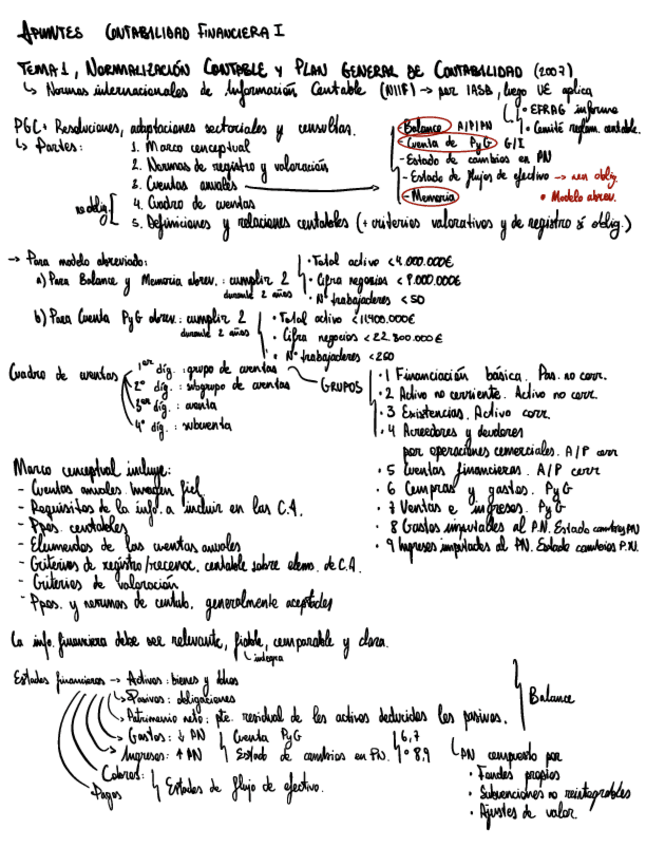 APUNTES CONTABILIDAD FINANCIERA I
TEMA 1, NORMALIZACIÓN CONTABLE Y PLAN GENERAL DE CONTABILIDAD (2007)
↳ Normas internacionales de Información Contable (NIIF) → por IASB, luego UE aplica
• EFRAG informa
• Comité reglam. contable.
PGC: Resoluciones, adaptaciones sectoriales y consultas.
↳ Partes:
1. Marco conceptual
2. Normas de registro y valoración
3. Cuentas anuales
- Balance A/P/PN
- Cuenta de PyG G/I
- Estado de cambios en PN
- Estado de flujos de efectivo → non oblig.
- Memoria
• Modelo abrev.
no oblig.
4. Cuadro de cuentas
5. Definiciones y relaciones contables (+ criterios valorativos y de registro sí oblig.)
→ Para modelo abreviado:
a) Para Balance y Memoria abrev.: cumplir 2 durante 2 años
• Total activo < 4.000.000€
• Cifra negocios < 8.000.000€
• Nº trabajadores < 50
b) Para Cuenta PyG abrev.: cumplir 2 durante 2 años
• Total activo < 11400.000€
• Cifra negocios < 22.800.000€
• Nº trabajadores < 250
Cuadro de cuentas
1er díg.: grupo de cuentas
2º díg.: subgrupo de cuentas
3er díg.: cuenta
4º díg.: subcuenta
GRUPOS
• 1 Financiación básica. Pas. no corr.
• 2 Activo no corriente. Activo no corr.
• 3 Existencias. Activo corr.
• 4 Acreedores y deudores
por operaciones comerciales. A/P corr
• 5 Cuentas financieras. A/P corr
• 6 Compras y gastos. PyG
• 7 Ventas e ingresos. PyG
• 8 Gastos imputables al P.N. Estado cambios PN
• 9 Ingresos imputados al PN. Estado cambios P.N.
Marco conceptual incluye:
- Cuentas anuales. Imagen fiel
- Requisitos de la info. a incluir en las C.A.
- Ppos. contables
- Elementos de las cuentas anuales
- Criterios de registro/reconoc. contable sobre elem. de C.A.
- Criterios de valoración
- Ppos. y normas de contab. generalmente aceptados
La info. financiera debe ser relevante, fiable, comparable y clara.
↳ íntegra
Estados financieros → Activos: bienes y dchos
↳ Pasivos: obligaciones
↳ Patrimonio neto: pte. residual de los activos deducidos los pasivos.
Balance
↳ Gastos: ↓ PN
Ingresos: ↑ PN
Cuenta PyG
Estado de cambios en PN.
6,7
8,9
Cobros:
Pagos
Estados de flujo de efectivo.
↳ PN compuesto por
• Fondos propios
• Subvenciones no reintegrables
• Ajustes de valor